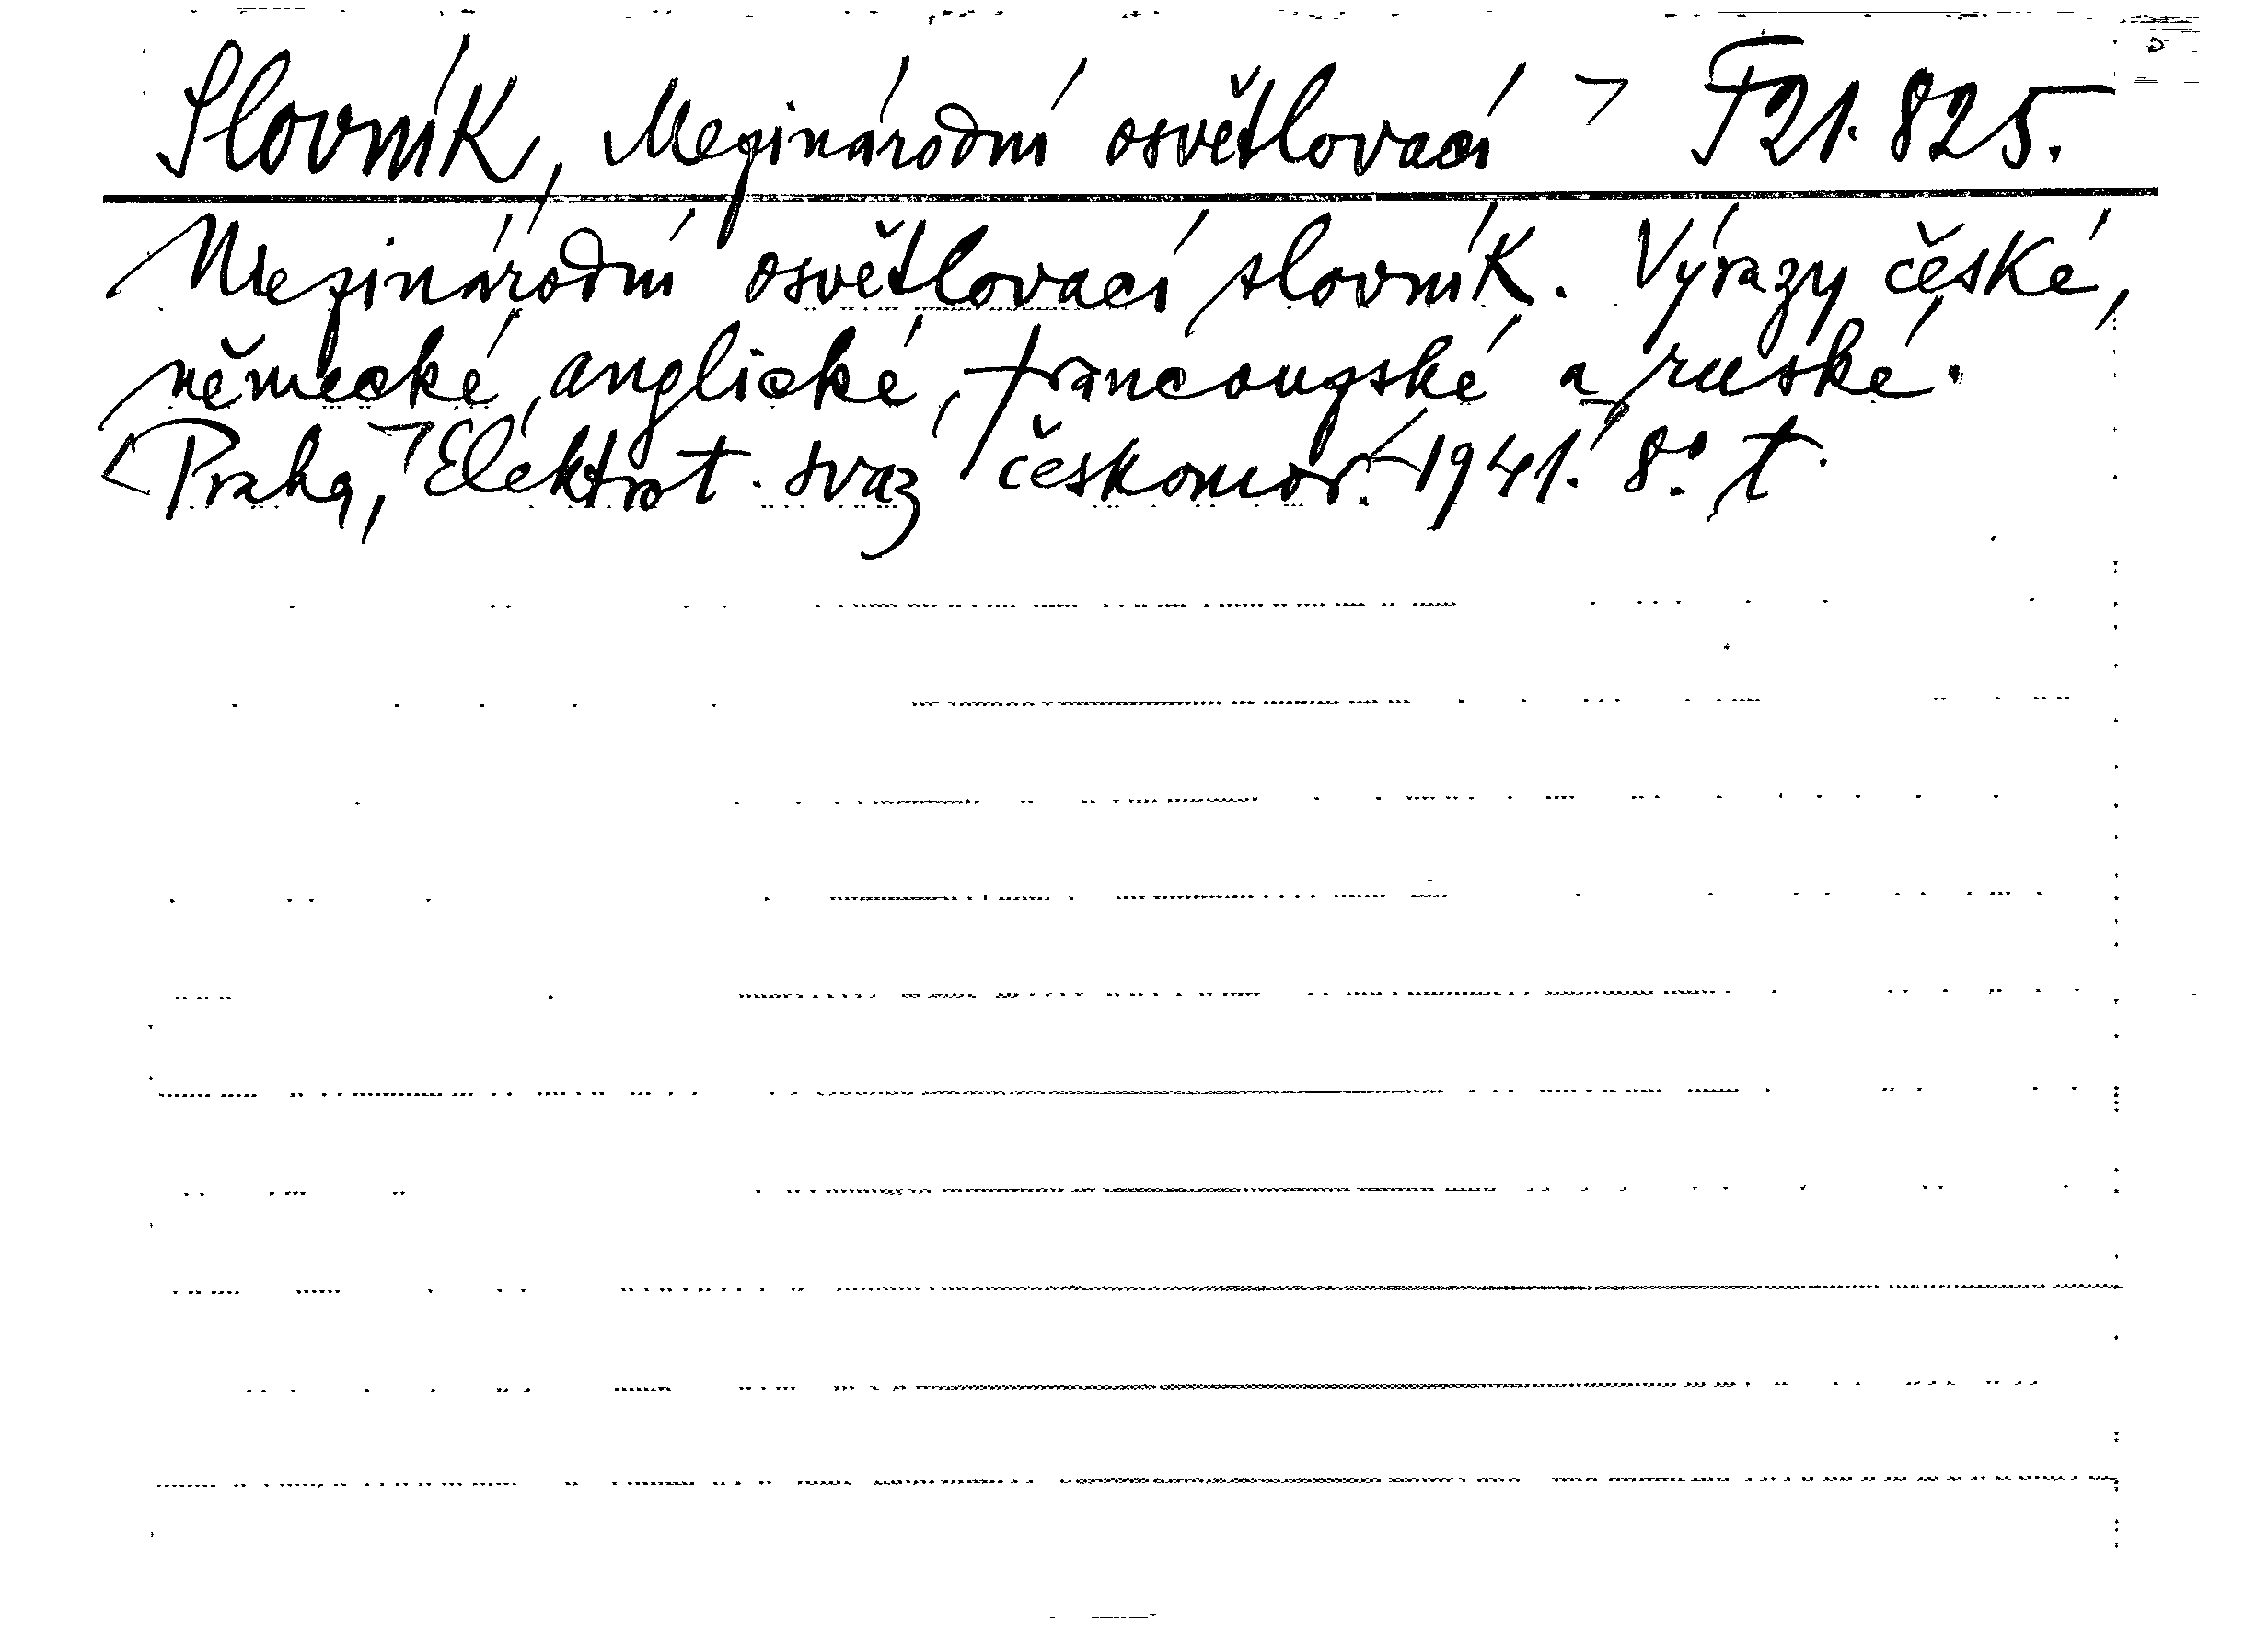 Slovník, Mezinárodní osvětlovací F 21.825.
Mezinárodní osvětlovací slovník. Výrazy české,
německé, anglické, francouzské a ruské.
Praha, Elektrot. svaz českomor. 1941. 8° t.